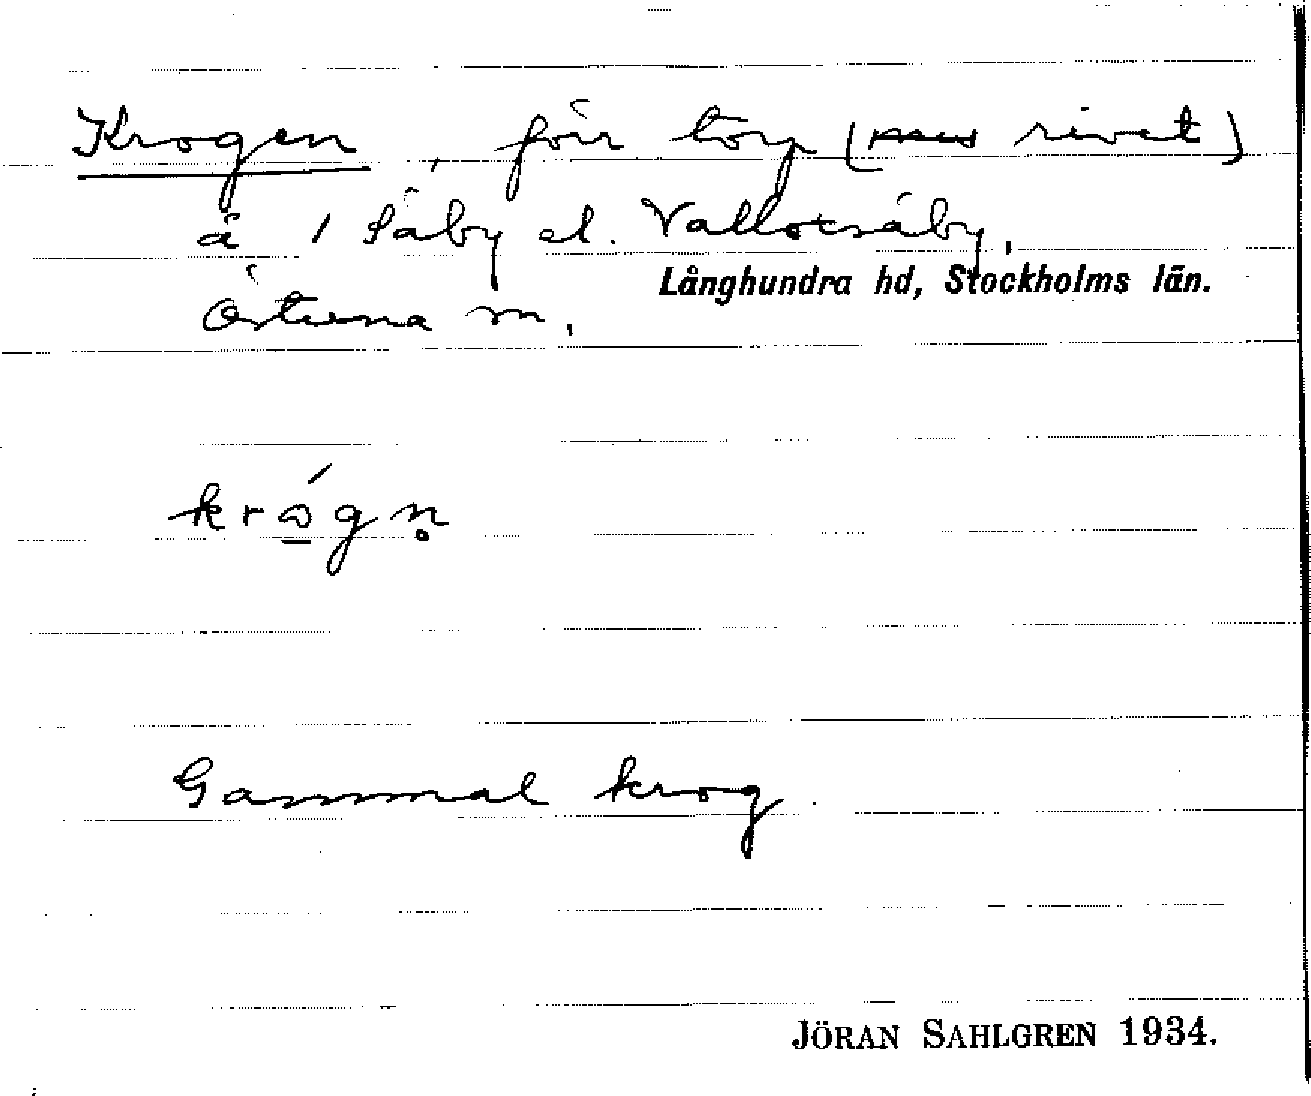 Krogen, förr torp (rivet)
å 1 Säby el. Vallotsäby,
Långhundra hd, Stockholms län.
Östuna sn.
krógn̥
Gammal krog.
JÖRAN SAHLGREN 1934.